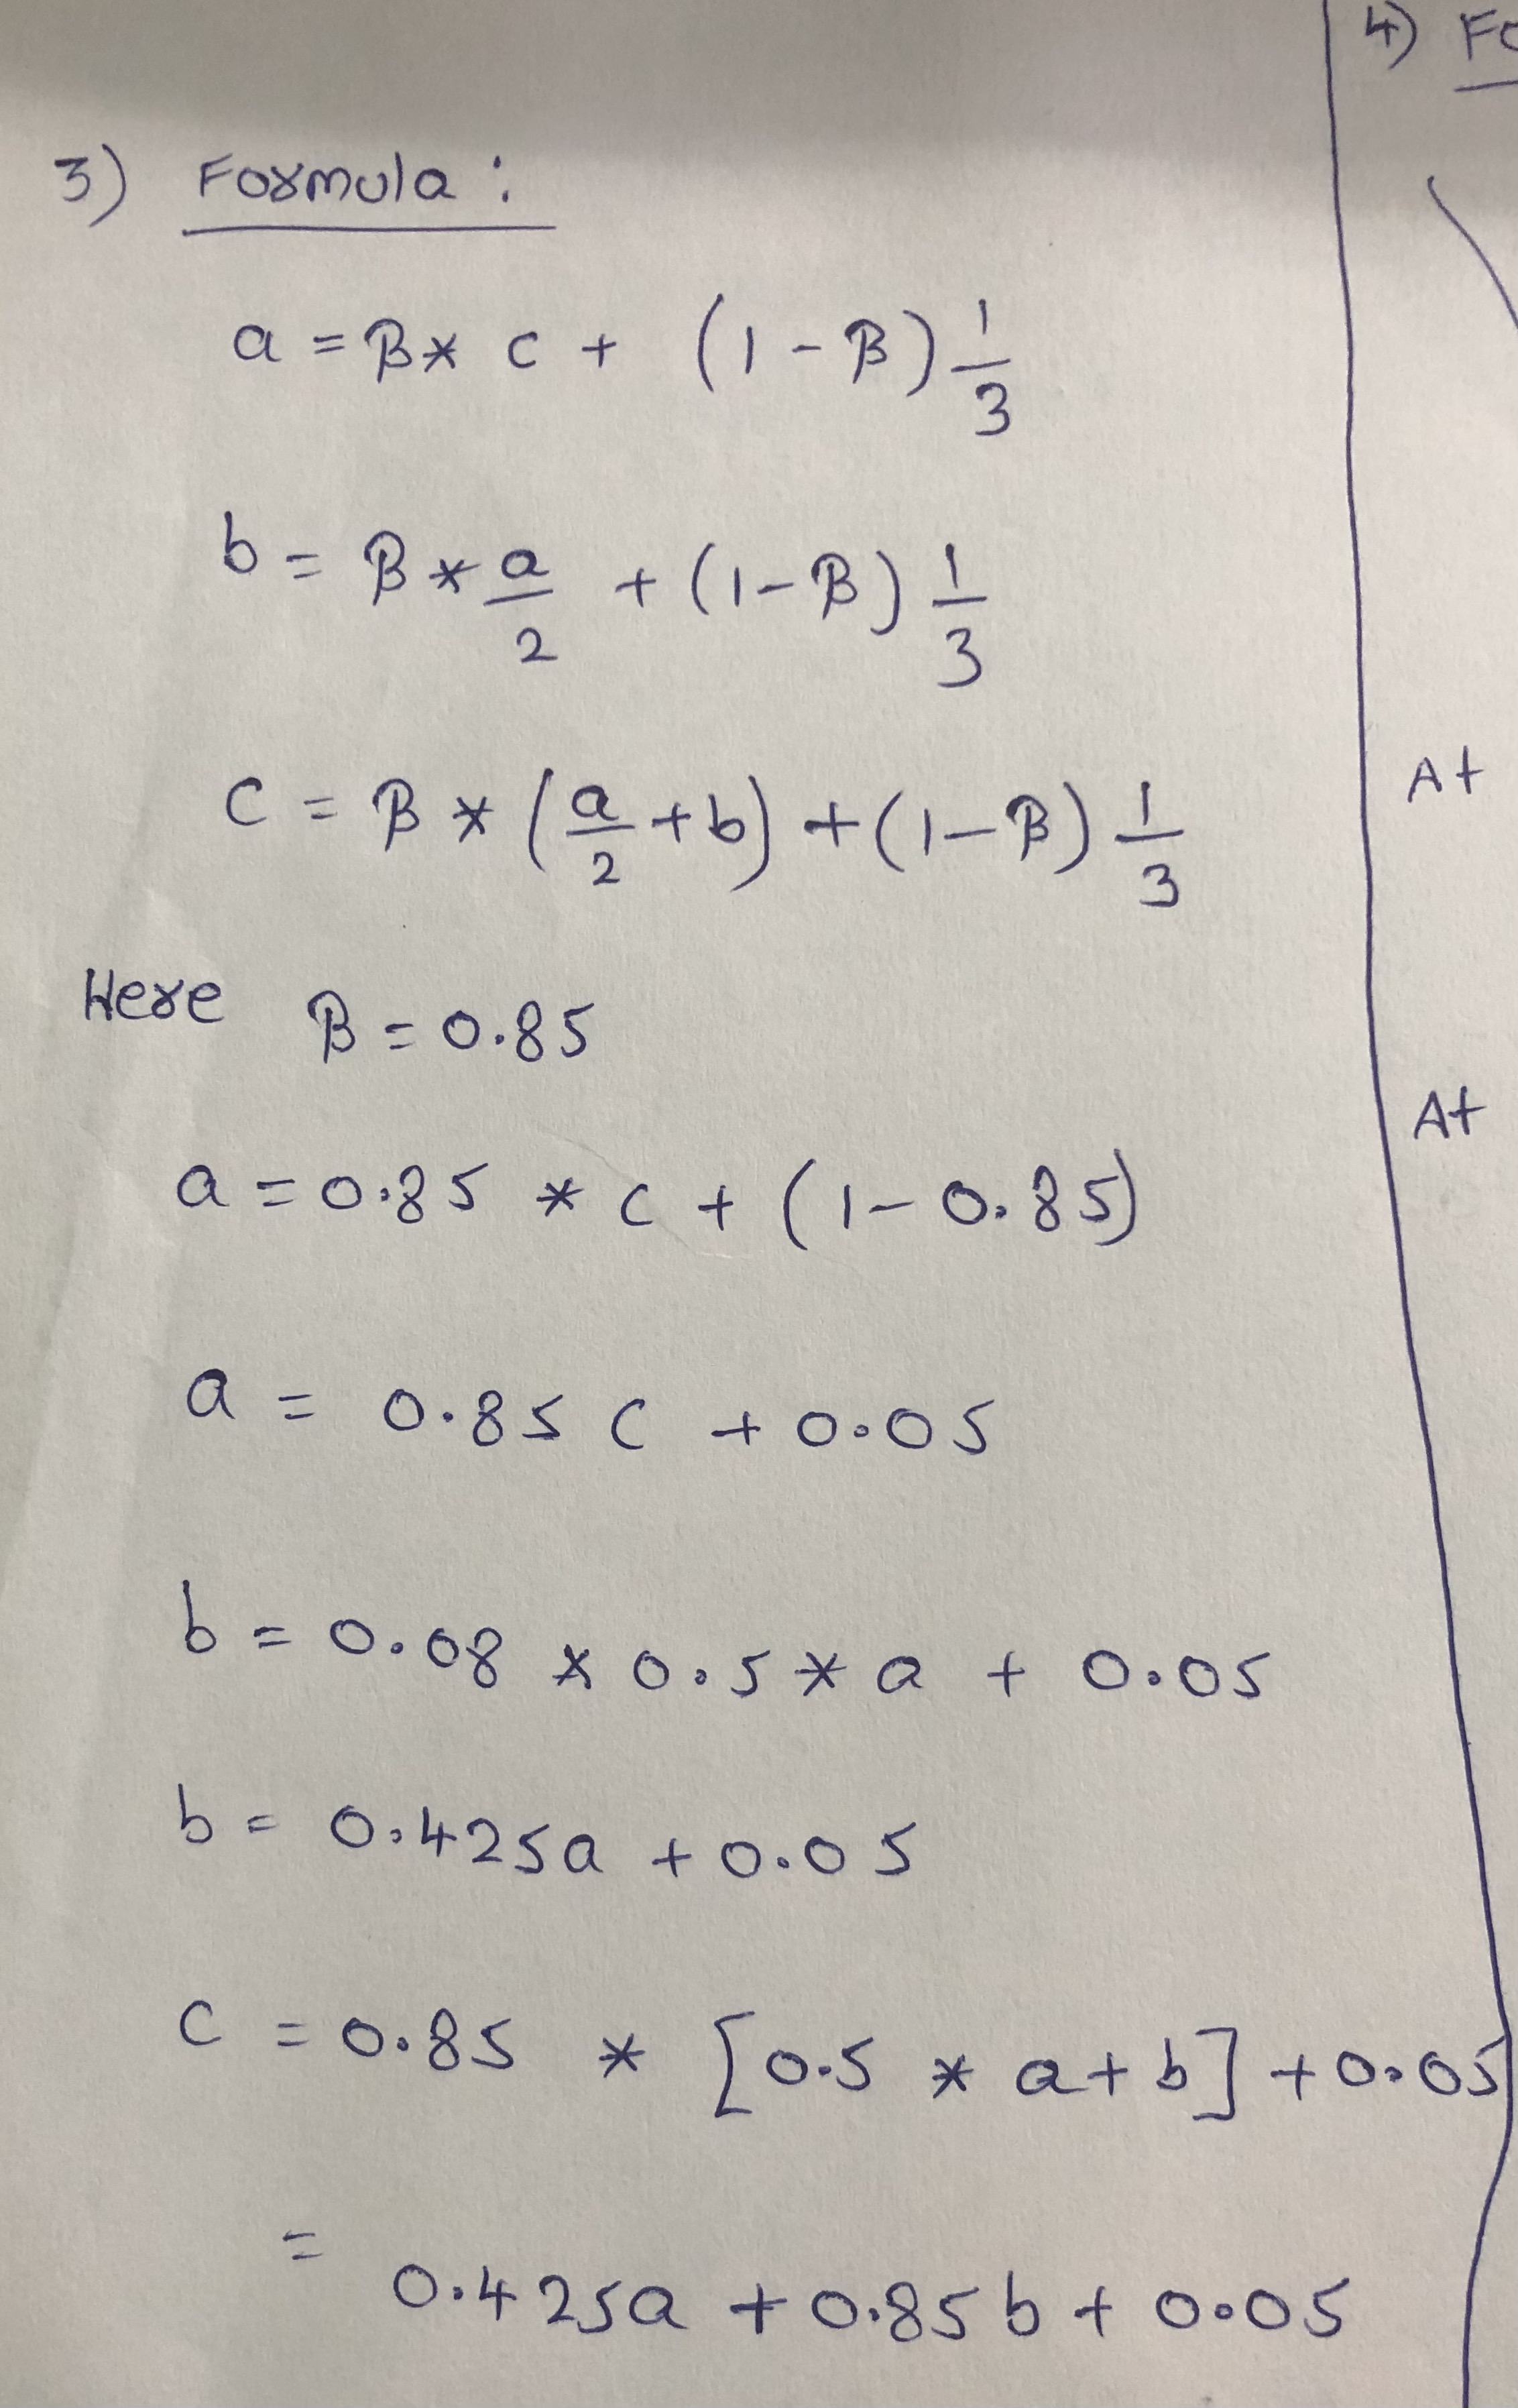 3) Formula :
a = β * c + (1 - β) 1/3
b = β * a/2 + (1 - β) 1/3
c = β * (a/2 + b) + (1 - β) 1/3
Here β = 0.85
a = 0.85 * c + (1 - 0.85)
a = 0.85 c + 0.05
b = 0.08 * 0.5 * a + 0.05
b = 0.425a + 0.05
c = 0.85 * [0.5 * a + b] + 0.05
= 0.425a + 0.85 b + 0.05
4) Fo
At
At